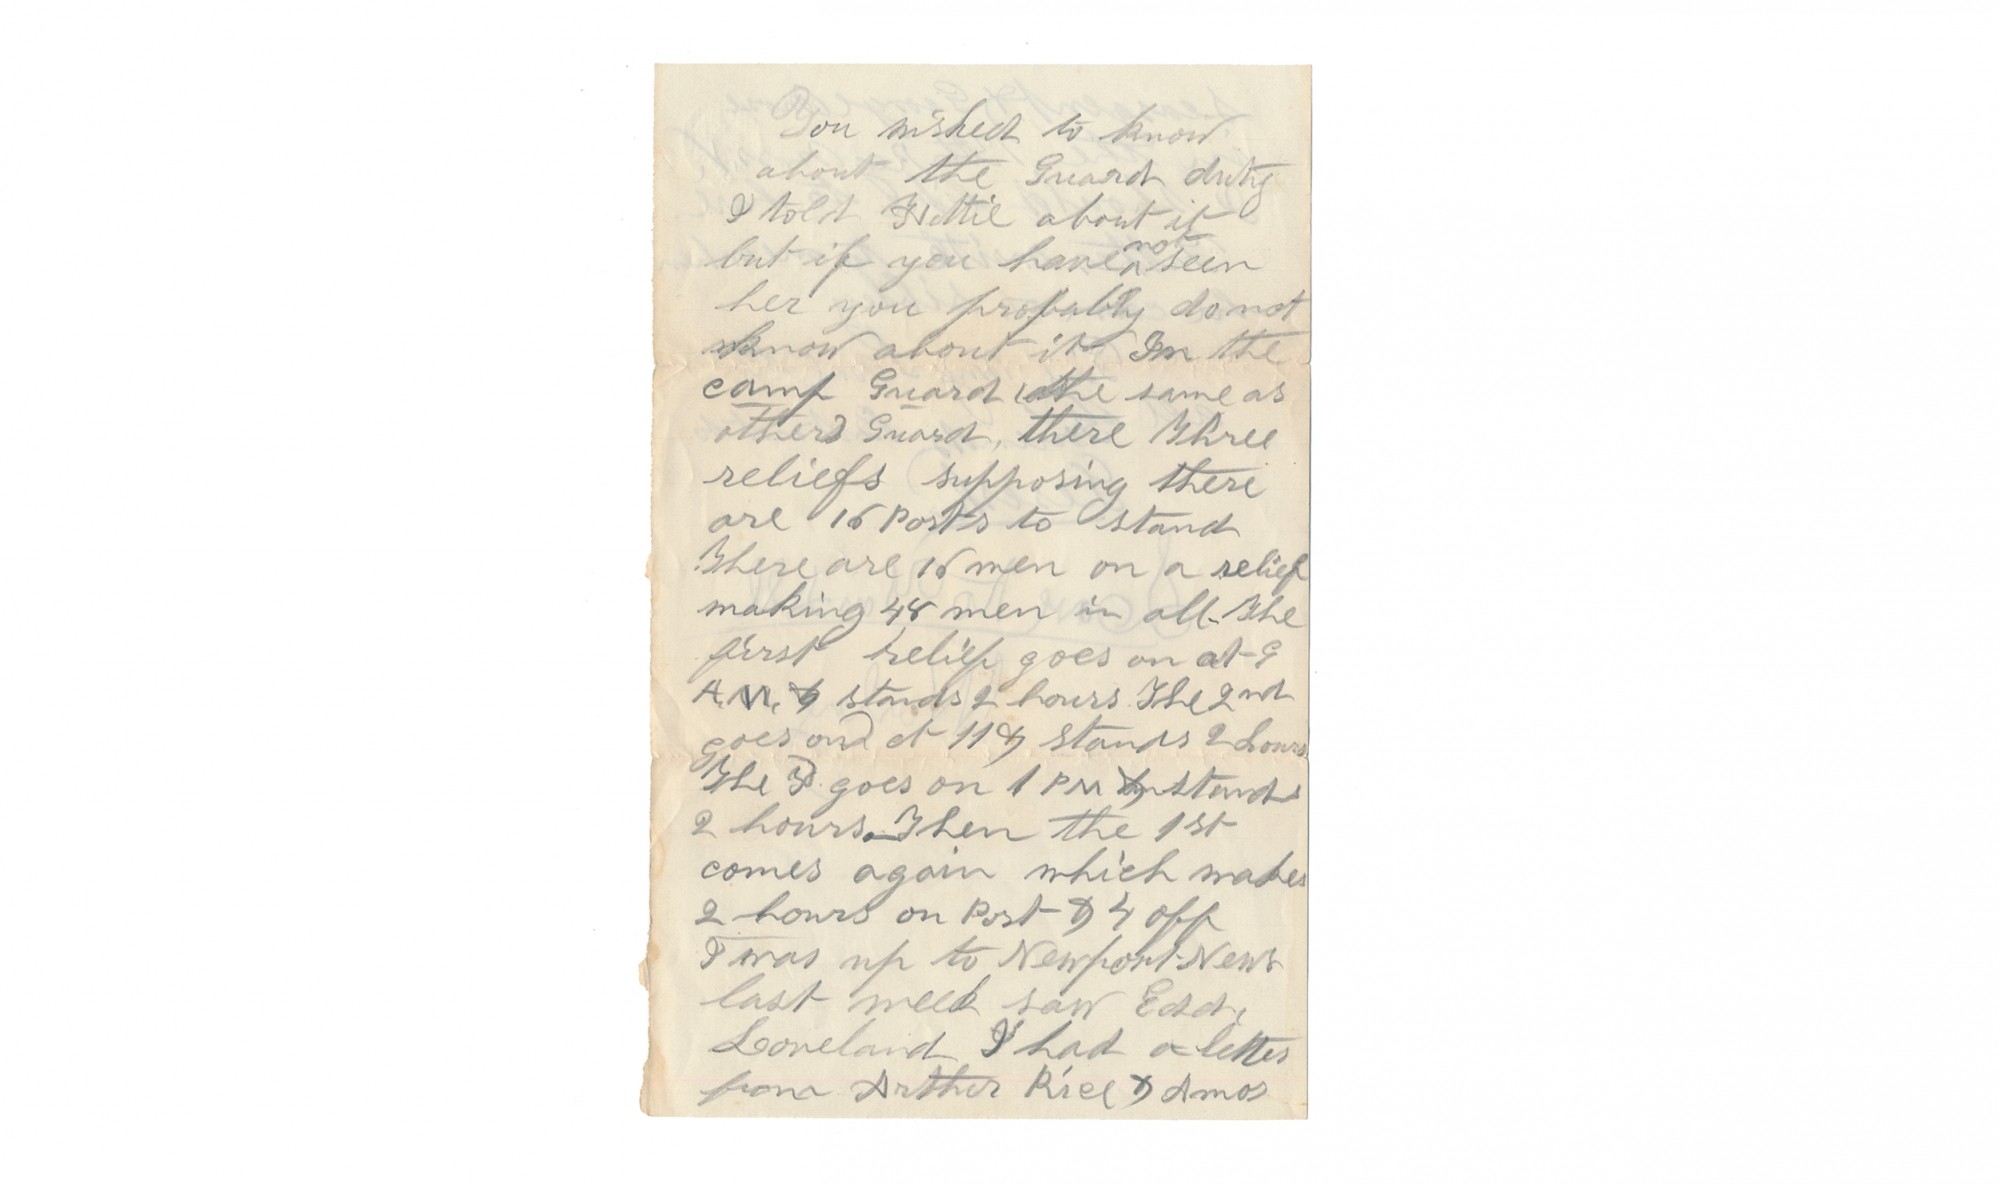 You wished to know
about the Guard duty
I told Hettie about it
but if you have not seen
her you probably do not
know about it In the
camp Guard the same as
other Guard, there Three
reliefs supposing there
are 16 Posts to stand
There are 16 men on a relief
making 48 men in all. The
first relief goes on at 9
A.M. & stands 2 hours The 2nd
goes on at 11 & stands 2 hours
The 3 goes on 1 PM & stands
2 hours. Then the 1st
comes again which makes
2 hours on Post & 4 off
I was up to Newport-News
last week saw Edd,
Loveland I had a letter
from Arther Rice & Amos